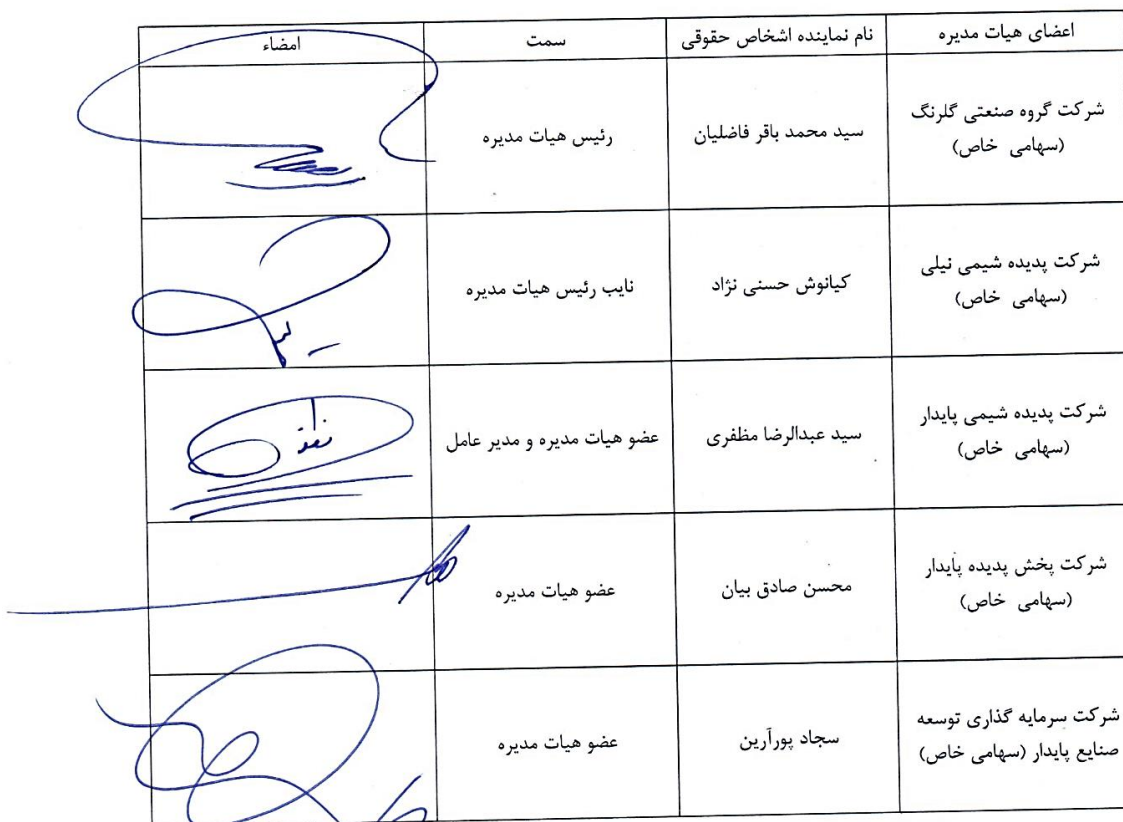 اعضای هیات مدیره	نام نماینده اشخاص حقوقی	سمت	امضاء
شرکت گروه صنعتی گلرنگ
(سهامی خاص)	سید محمد باقر فاضلیان	رئیس هیات مدیره
شرکت پدیده شیمی نیلی
(سهامی خاص)	کیانوش حسنی نژاد	نایب رئیس هیات مدیره
شرکت پدیده شیمی پایدار
(سهامی خاص)	سید عبدالرضا مظفری	عضو هیات مدیره و مدیر عامل
شرکت پخش پدیده پایدار
(سهامی خاص)	محسن صادق بیان	عضو هیات مدیره
شرکت سرمایه گذاری توسعه
صنایع پایدار (سهامی خاص)	سجاد پورآرین	عضو هیات مدیره